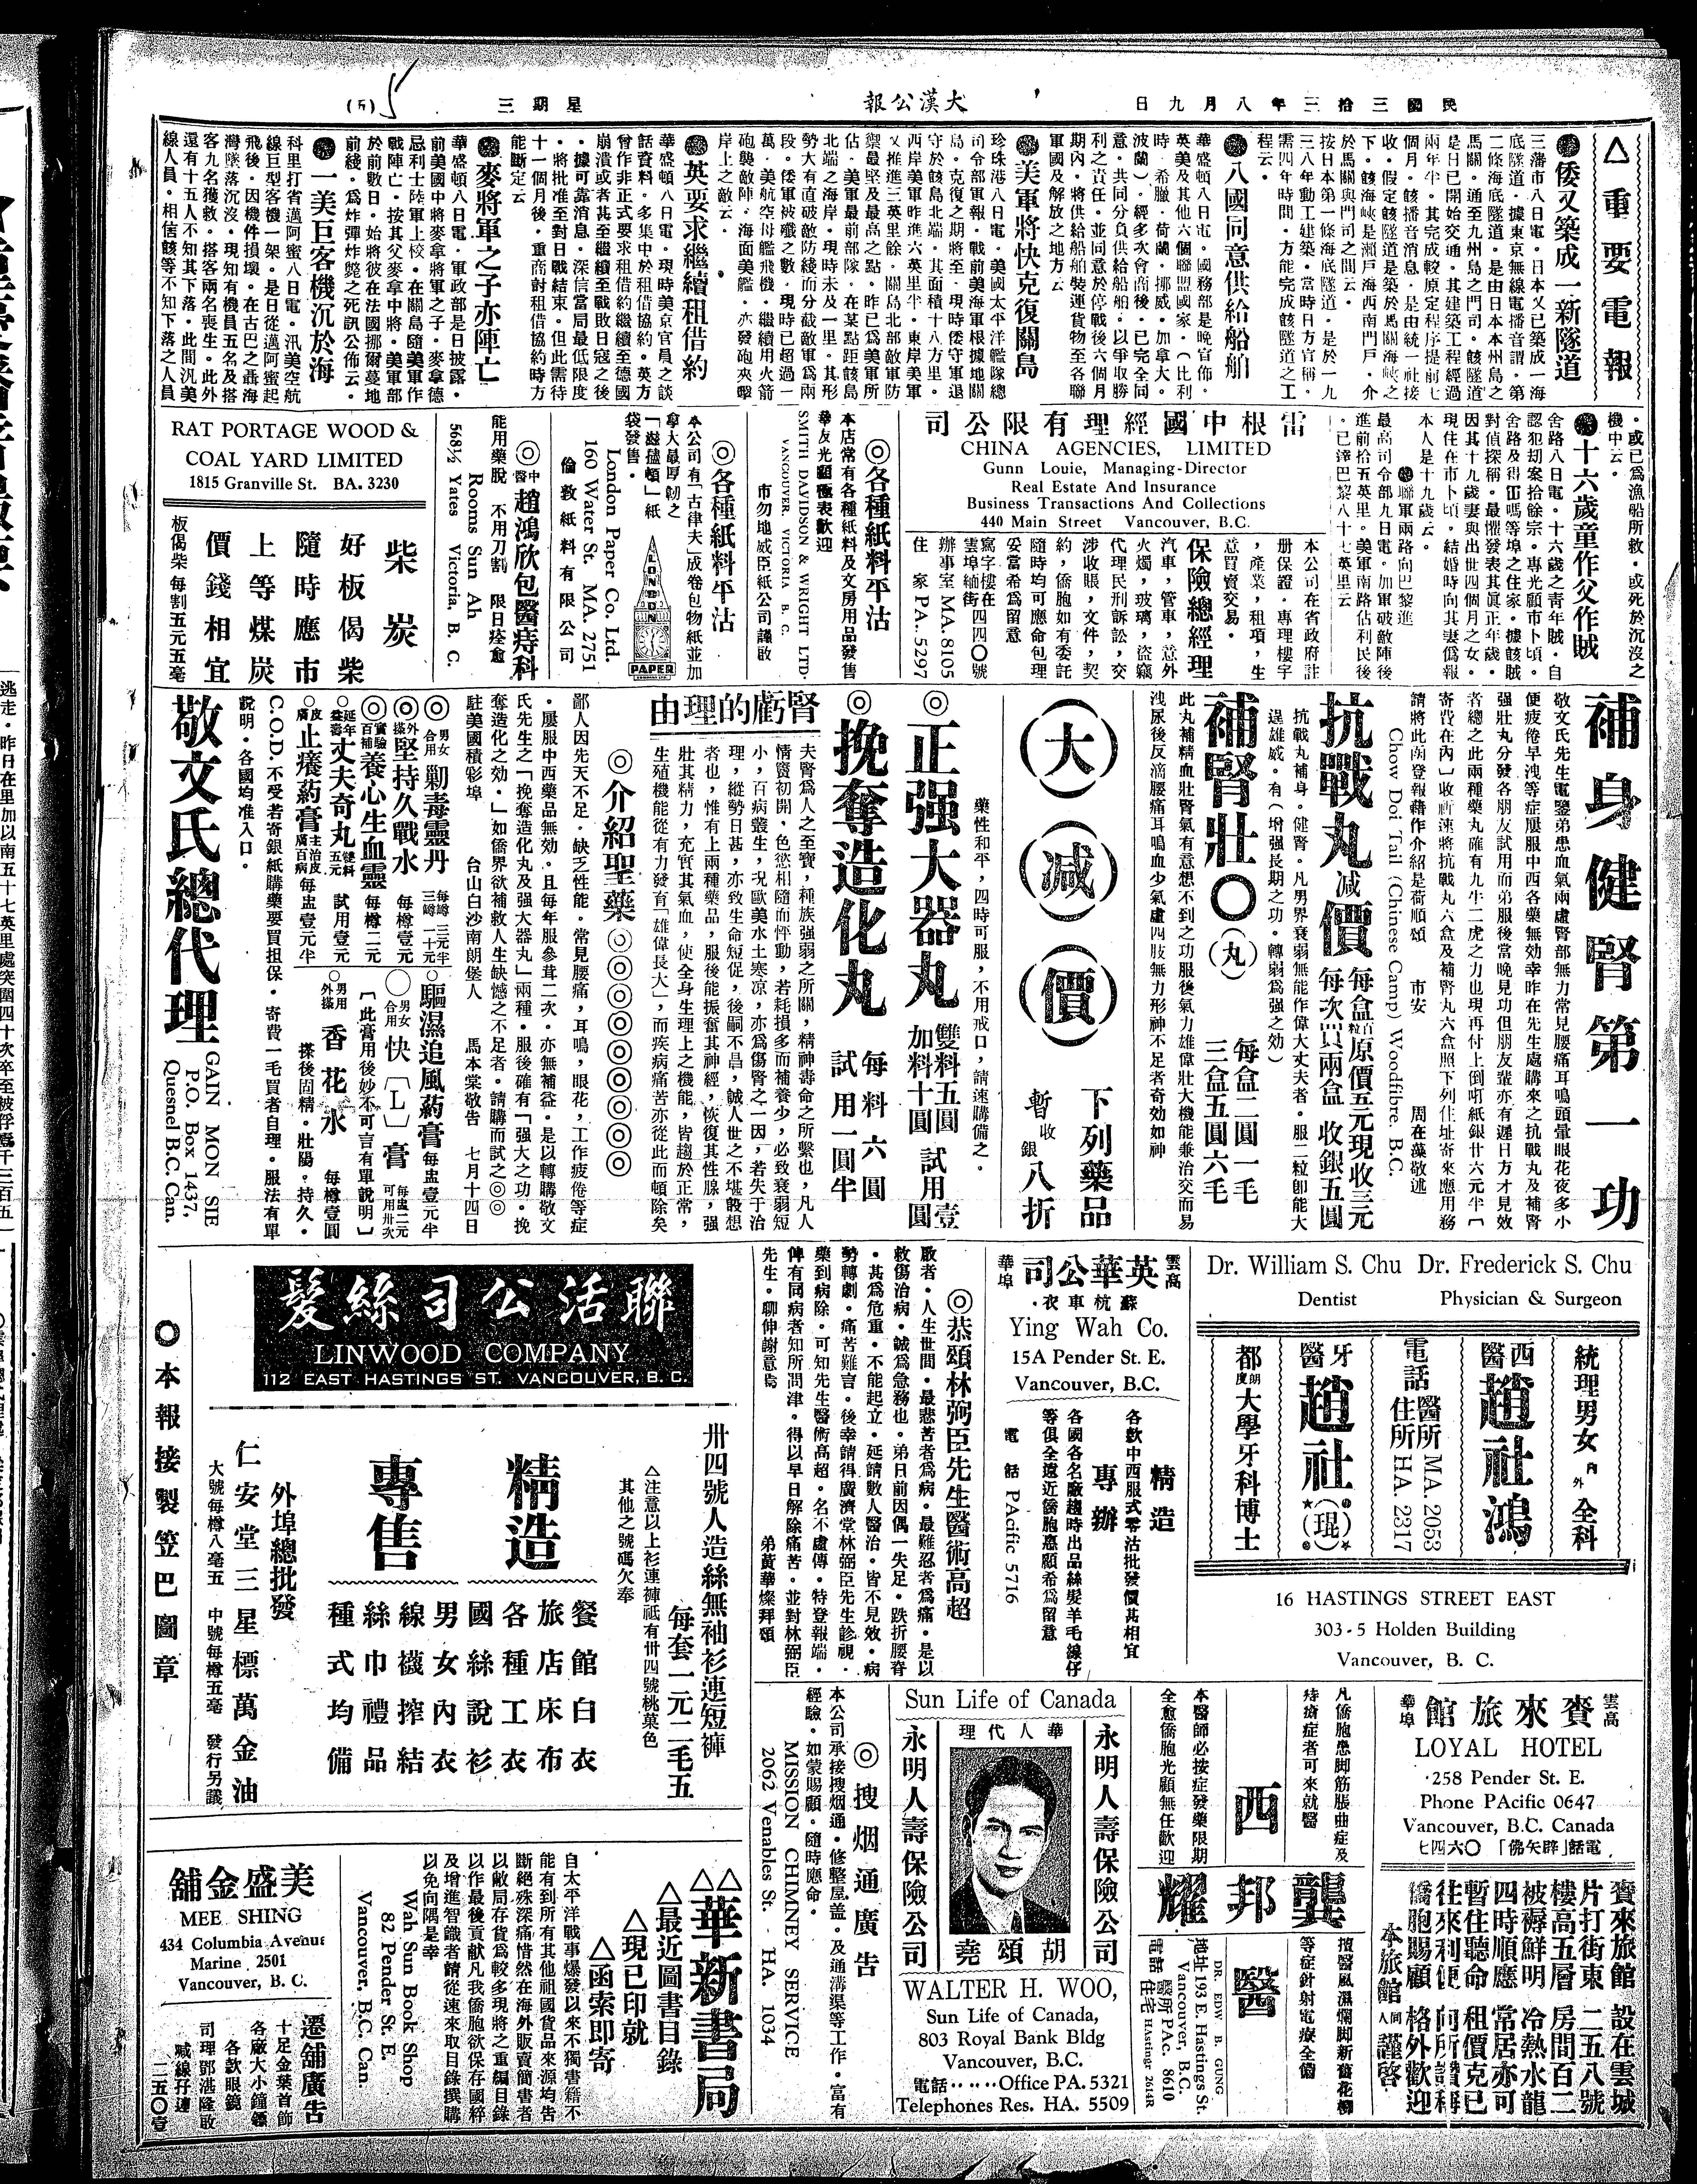 民國三拾三年八月九日
大漢公報
星期三
(五)
△重要電報
●倭又築成一新隧道
三藩市八日電。日本又已築成一海
底隧道。據東京無線電播音謂。第
二條海底隧道。是由日本本州島之
馬關。通至九州島之門司。該隧道
是日已開始交通。其建築工程經過
兩年半。其完成較原定程序提前七
個月。該播音消息。是由統一社接
收。假定該隧道是築於馬關海峽之
下。該海峽是瀨戶海西南門戶。介
於馬關與門司之間云。
按日本第一條海底隧道。是於一九
三八年動工建築。當時日方官稱。
需四年時間。方能完成該隧道之工
程云。
●八國同意供給船舶
華盛頓八日電。國務部是晚宣佈。
英美及其他六個聯盟國家。(比利
時。希臘。荷蘭。挪威。加拿大。
波蘭)。經多次會商後。已完全同
意。共同分負供給船舶。以爭取勝
利之責任。並同意於停戰後六個月
期內。將供給船舶裝運貨物至各聯
軍國及解放之地方云。
●美軍將快克復關島
珍珠港八日電。美國太平洋艦隊總
司令部軍報。戰前美海軍根據地關
島。克復之期將至。現時倭守軍退
守於該島北端。其面積十八方里。
西岸美軍昨進六英里半。東岸美軍
又推進三英里餘。關島北部敵軍防
禦最堅及最高之點。昨已爲美軍所
佔。美軍最前部隊。在某點距該島
北端之海岸。現時未及一里。其形
勢大有直破敵防綫而分敵敵軍爲兩
段。倭軍被殲之數。現時已超過一
萬。美航空母艦飛機。繼續用火箭
砲襲敵陣。海面美艦。亦發砲夾擊
岸上之敵云。
●英要求繼續租借約
華盛頓八日電。現時美京官員之談
話資料。多集中於租借協約。英方
曾作非正式要求租借約繼續至德國
崩潰或者甚至繼續至戰敗日寇之後
。據可靠消息。深信當局最低限度
。將批准至對日戰結束。但此需待
十一個月後。重商討租借協約時方
能斷定云
●麥將軍之子亦陣亡
華盛頓八日電。軍政部是日披露。
前美國中將麥拿將軍之子。麥拿德
忌利士陸軍上校。在關島隨美軍作
戰陣亡。按其父麥拿中將。美軍部
於前數日。始將彼在法國挪爾蔓地
前綫。爲炸彈炸斃之死訊公佈云。
●一美巨客機沉於海
科里打省邁阿蜜八日電。汎美空航
線巨型客機一架。是日從邁阿蜜起
飛後。因機件損壞。在古巴之聶海
灣墜落沉沒。現知有機員五名及搭
客九名獲救。搭客兩名喪生。此外
還有十五人不知其下落。此間汎美
線人員。相信該等不知下落之人員
。或已爲漁船所救。或死於沉沒之
機中云。
●十六歲童作父作賊
舍路八日電。十六歲之靑年賊。自
認犯刧案拾餘宗。專光顧市卜頃。
舍路及得亞嗎等埠之住家。據該賊
對偵探稱。最懼發表其眞正年歲。
因其十九歲妻與出世四個月之女。
現住在市卜頃。結婚時向其妻僞報
本人是十九歲云。
●聯軍兩路向巴黎進
最高司令部九日電。加軍破敵陣後
進前拾五英里。美軍南路佔利民後
。已達巴黎八十七英里云
雷根中國經理有限公司
CHINA AGENCIES, LIMITED
Gunn Louie, Managing-Director
Real Estate And Insurance
Business Transactions And Collections
440 Main Street Vancouver, B.C.
本公司在省政府註
册保證。專理樓宇
,產業,租項,生
意買賣交易。
保險總經理
汽車,管車,意外
火燭,玻璃,盜竊
代理民刑訴訟,交
涉收賬,文件,契
約,僑胞如有委託
隨時均可應命包理
妥當希爲留意
寫字樓在
雲埠緬街四四〇號
辦事室 MA. 8105
住家 PA. 5297
◎各種紙料平沽
本店常有各種紙料及文房用品發售
華友光顧極表歡迎
SMITH DAVIDSON & WRIGHT LTD.
VANCOUVER, VICTORIA B. C.
市勿地威臣紙公司謹啟
◎各種紙料平沽
本公司有「古律夫」成卷包物紙並加
拿大最厚韌之
「遊攄頓」紙
袋發售。
London Paper Co. Ltd.
160 Water St. MA. 2751
倫敦紙料有限公司
LONDON
PAPER
◎中醫趙鴻欣包醫痔科
能用藥脫 不用刀割 限日痊愈
Rooms Sun Ah
568½ Yates Victoria, B. C.
RAT PORTAGE WOOD &
COAL YARD LIMITED
1815 Granville St. BA. 3230
柴炭
好板偈柴
隨時應市
上等煤炭
價錢相宜
板偈柴每割五元五毫
補身健腎第一功
敬文氏先生電鑒弟患血氣兩虛腎部無力常見腰痛耳鳴頭暈眼花夜多小
便疲倦早洩等症屢服中西各藥無効幸昨在先生處購來之抗戰丸及補腎
强壯丸分發各朋友試用而弟服後當晚見功但朋友輩亦有遲日方才見效
者總之此兩種藥丸確有九牛二虎之力也現再付上倒啱紙銀廿六元半〔
寄費在內〕收祈速將抗戰丸六盒及補腎丸六盒照下列住址寄來應用務
請將此函登報藉作介紹是荷順頌 市安 周在藻敬述
Chow Doi Tail (Chinese Camp) Woodfibre. B.C.
抗戰丸減價
每盒百粒原價五元現收三元
每次買兩盒 收銀五圓
抗戰丸補身。健腎。凡男界衰弱無能作偉大丈夫者。服二粒卽能大
逞雄威。有(增强長期之功。轉弱爲强之効)
補腎壯〇(丸)
每盒二圓一毛
三盒五圓六毛
此丸補精血壯腎氣有意想不到之功服後氣力雄偉壯大機能兼治交而易
洩尿後反滴腰痛耳鳴血少氣虛四肢無力形神不足者奇効如神
(大)(減)(價)
下列藥品
暫收銀八折
藥性和平,四時可服,不用戒口,請速購備之。
◎正强大器丸
雙料五圓 試用壹圓
加料十圓
◎挽奪造化丸
每料六圓
試用一圓半
腎虧的理由
夫腎爲人之至寶,種族强弱之所關,精神壽命之所繫也,凡人
情竇初開,色慾相隨而怦動,若耗損多而補養少,必致衰弱短
小,百病叢生,況歐美水土寒凉,亦爲傷腎之一因,若失于治
理,縱勢日甚,亦致生命短促,後嗣不昌,誠人世之不堪設想
者也,惟有上兩種藥品,服後能振奮其神經,恢復其性腺,强
壯其精力,充實其氣血,使全身生理上之機能,皆趨於正常,
生殖機能從有力發育「雄偉長大」,而疾病痛苦亦從此而頓除矣
◎介紹聖藥◎◎◎◎◎◎◎◎◎
鄙人因先天不足。缺乏性能。常見腰痛,耳鳴,眼花,工作疲倦等症
。屢服中西藥品無効。且每年服參茸二次。亦無補益。是以轉購敬文
氏先生之「挽奪造化丸及强大器丸」兩種。服後確有「强大之功。挽
奪造化之効。」如僑界欲補救人生缺憾之不足者。請購而試之◎◎
駐美國積彩埠 台山白沙南朗堡人 馬本棠敬告 七月十四日
◎男女合用剿毒靈丹 每罇三元半 三罇一十元
◎外搽堅持久戰水 每樽壹元
◎實驗百補養心生血靈 每樽二元
延年益壽丈夫奇丸 雙料五元 試用壹元
○皮膚止癢葯膏 主治皮膚百病 每盅壹元半
○驅濕追風葯膏 每盅壹元半
○男女合用快〔L〕膏 每盅二元 可用卅次
〔此膏用後妙不可言有單說明〕
○男用外搽香花水 每樽壹圓
搽後固精。壯陽。持久。
C.O.D.不受若寄銀紙購藥要買担保。寄費一毛買者自理。服法有單
說明。各國均准入口。
敬文氏總代理
GAIN MON SIE
P.O. Box 1437,
Quesnel B.C. Can.
Dr. William S. Chu Dr. Frederick S. Chu
Dentist Physician & Surgeon
統理男女內外全科
西醫趙社鴻
電話 醫所 MA. 2053
住所 HA. 2317
牙醫趙社(琨)
都朗度大學牙科博士
16 HASTINGS STREET EAST
303-5 Holden Building
Vancouver, B. C.
雲高華埠
英華公司
蘇杭車衣.
Ying Wah Co.
15A Pender St. E.
Vancouver, B.C.
精造
各欵中西服式零沽批發價甚相宜
專辦
各國各名廠趨時出品絲髮羊毛線仔
等俱全遠近僑胞惠顧希爲留意
電話 PAcific 5716
◎恭頌林弼臣先生醫術高超
啟者。人生世間。最悲苦者爲病。最難忍者爲痛。是以
救傷治病。誠爲急務也。弟日前因偶一失足。跌折腰脊
。甚爲危重。不能起立。延請數人醫治。皆不見效。病
勢轉劇。痛苦難言。後幸請得廣濟堂林弼臣先生診視。
藥到病除。可知先生醫術高超。名不虛傳。特登報端。
俾有同病者知所問津。得以早日解除痛苦。並對林弼臣
先生。聊伸謝意焉 弟黃華燦拜頌
聯活公司絲髮
LINWOOD COMPANY
112 EAST HASTINGS ST. VANCOUVER, B. C.
卅四號人造絲無袖衫連短褲
每套一元二毛五
△注意以上衫連褲祗有卅四號桃菓色
其他之號碼欠奉
精造
專售
餐館白衣
旅店床布
各種工衣
國絲說衫
男女內衣
線襪搾結
絲巾禮品
種式均備
外埠總批發
仁安堂三星標萬金油
大號每樽八毫五 中號每樽五毫 發行另議
〇本報接製笠巴圖章
雲高華埠
賚來旅館
LOYAL HOTEL
258 Pender St. E.
Phone PAcific 0647
Vancouver, B.C. Canada
電話「啤矢佛」〇六四七
賚來旅館 設在雲城
片打街東 二五八號
樓高五層 房間百二
被褥鮮明 冷熱水龍
四時順應 常居亦可
暫住聽命 租價克已
往來利便 向所讚稱
僑胞賜顧 格外歡迎
本旅館同人謹啓
凡僑胞患脚筋脹曲症及
痔瘡症者可來就醫
西醫
龔邦耀
本醫師必按症發藥限期
全愈僑胞光顧無任歡迎
按醫風濕爛脚新舊花柳
等症針射電療全備
DR. EDW B. GUNG
地址 193 E. Hastings St.
Vancouver, B.C.
電話 醫所 PAc. 8610
住宅 HAstings 2614R
Sun Life of Canada
永明人壽保險公司
華人代理
永明人壽保險公司
胡頌堯
WALTER H. WOO,
Sun Life of Canada,
803 Royal Bank Bldg
Vancouver, B.C.
電話......Office PA. 5321
Telephones Res. HA. 5509
◎搜烟通廣告
本公司承接搜烟通。修整屋盖。及通溝渠等工作。富有
經驗。如蒙賜顧。隨時應命。
MISSION CHIMNEY SERVICE
2062 Venables St. HA. 1034
△△華新書局
△最近圖書目錄
△現已印就
△函索即寄
自太平洋戰事爆發以來不獨書籍不
能有到所有其他祖國貨品來源均告
斷絕殊深痛惜然在海外販賣簡書者
以敝局存貨爲較多現將之重編目錄
以作最後貢献凡我僑胞欲保存國粹
及增進智識者請從速來取目錄撰購
以免向隅是幸
Wah Sun Book Shop
82 Pender St. E.
Vancouver, B.C. Can.
美盛金舖
MEE SHING
434 Columbia Avenue
Marine 2501
Vancouver, B. C.
遷舖廣告
十足金葉首飾
各廠大小鐘錶
各欵眼鏡
司理鄧湛隆啟
喊線仔連
二五〇壹
逃走。昨日在里加以南五十七英里處突圍四十次卒至被俘